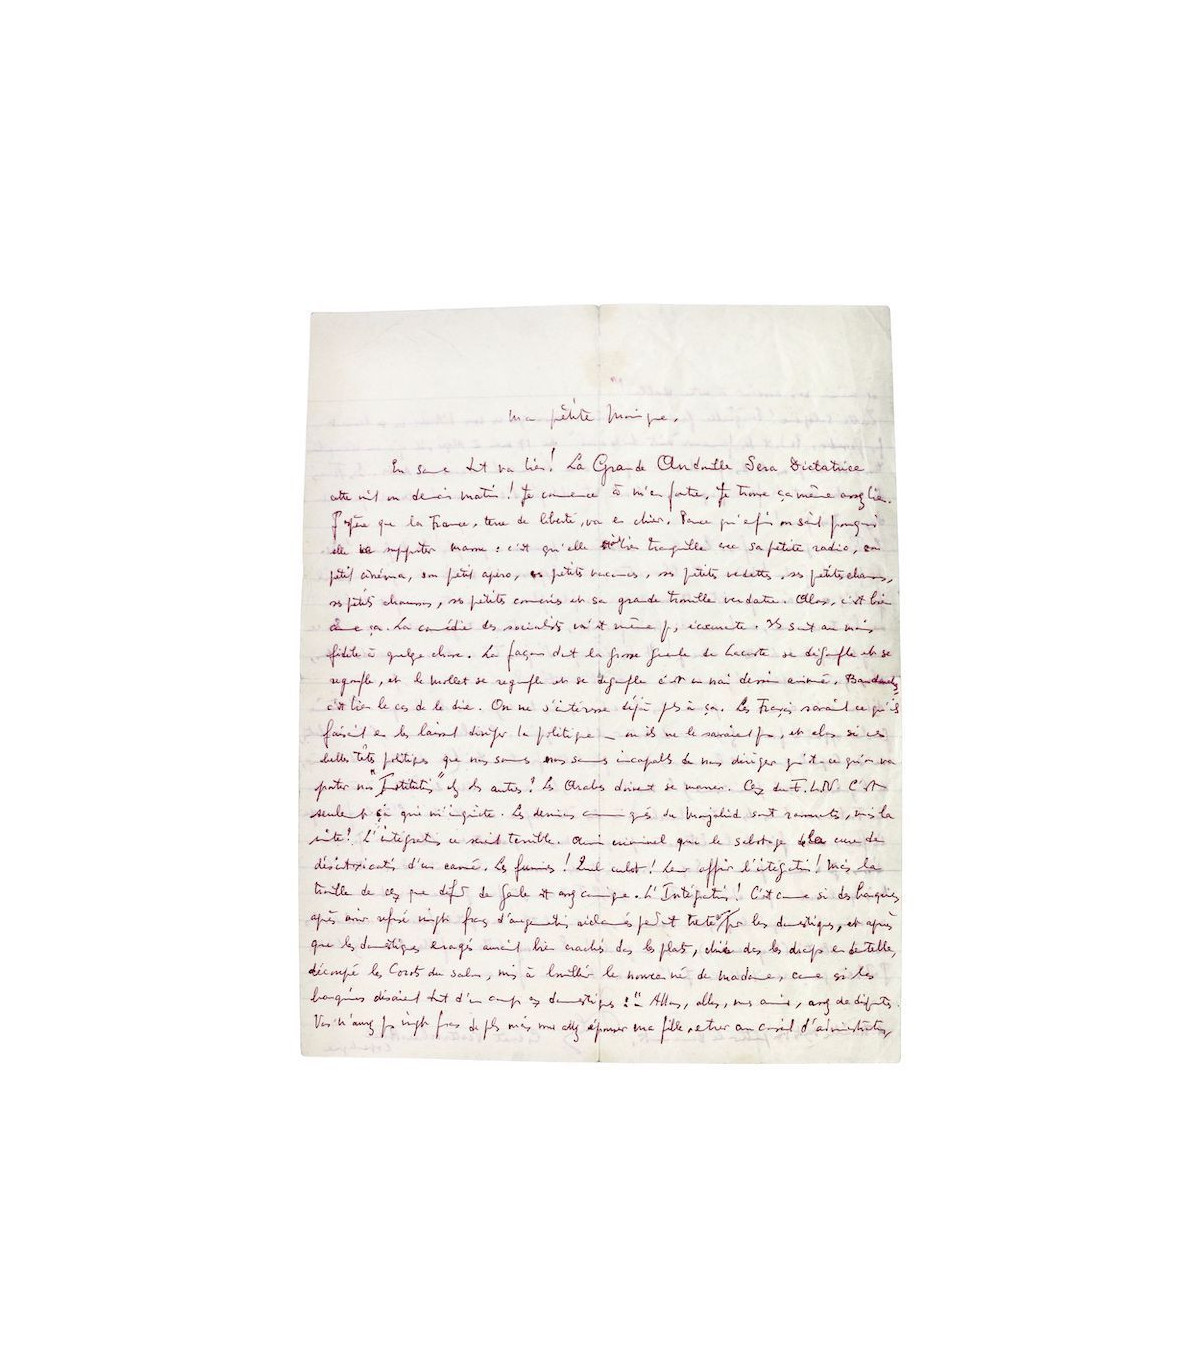 Ma petite Monique,
En somme tout va bien ! La Grande Andouille Sera Dictatrice
cette nuit ou demain matin ! Je commence à m'en foutre. Je trouve ça même assez bien.
J'espère que la France, terre de liberté, va en chier. Parce qu'enfin on sait pourquoi
elle supporter : c'est qu'elle bien tranquille avec sa petite radio, son
petit cinéma, son petit apéro, ses petites vacances, ses petites vedettes, ses petites chansons,
ses petits chaussons, ses petites conneries et sa grande trouille verdâtre. Alors, c'est bien
comme ça. La comédie des socialistes n'est même pas écœurante. Ils sont au moins
fidèle à quelque chose. La façon dont la grosse gueule de Lacoste se dégonfle et se
regonfle, et le Mollet se regonfle et se dégonfle c'est un vrai dessin animé.
c'est bien le cas de le dire. On ne s'intéresse déjà plus à ça. Les Français savaient ce qu'ils
faisaient en les laissant diriger la politique — ou ils ne le savaient pas, et alors si ces
belles têtes politiques que nous sommes nous sommes incapables de nous diriger qu'est-ce qu'on va
porter nos "Institutions" chez les autres ? Les Arabes doivent se marrer. Ceux du F.L.N. C'est
seulement ça qui m'inquiète. Les derniers communiqués du Moujahid sont rassurants, mais la
suite ! L'intégration ce serait terrible. Aussi criminel que le sabotage de la cure de
désintoxication d'un camé. Les fumiers ! Quel culot ! Leur offrir l'intégration ! Mais la
trouille de ceux que défunt de Gaulle est assez comique. L'Intégration ! C'est comme si des banquiers
après avoir refusé vingt francs d'augmentation réclamés pendant trente par les domestiques, et après
que les domestiques enragés auraient bien craché dans les plats, chié dans les draps en dentelle,
découpé les Corots du salon, mis à bouillir le nouveau né de madame, comme si les
banquiers disaient tout d'un coup aux domestiques : "Allons, allons, mes amis, assez de disputes.
Vous n'aurez pas vingt francs de plus mais vous allez épouser ma fille, entrer au conseil d'administration,